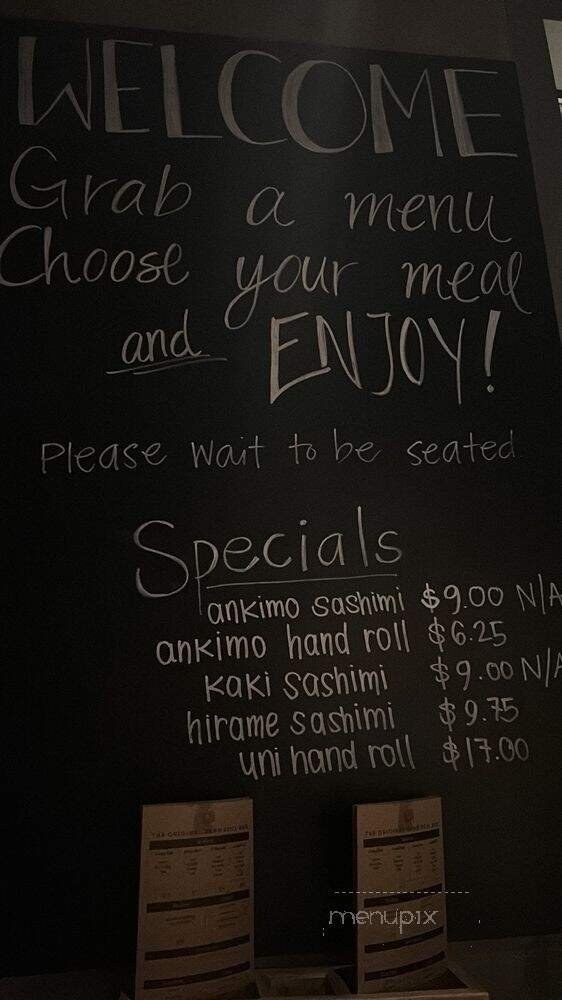 WELCOME
Grab a menu
Choose your meal
and ENJOY!
Please wait to be seated
Specials
ankimo sashimi $9.00 N/A
ankimo hand roll $6.25
kaki sashimi $9.00 N/A
hirame sashimi $9.75
uni hand roll $17.00
menupix